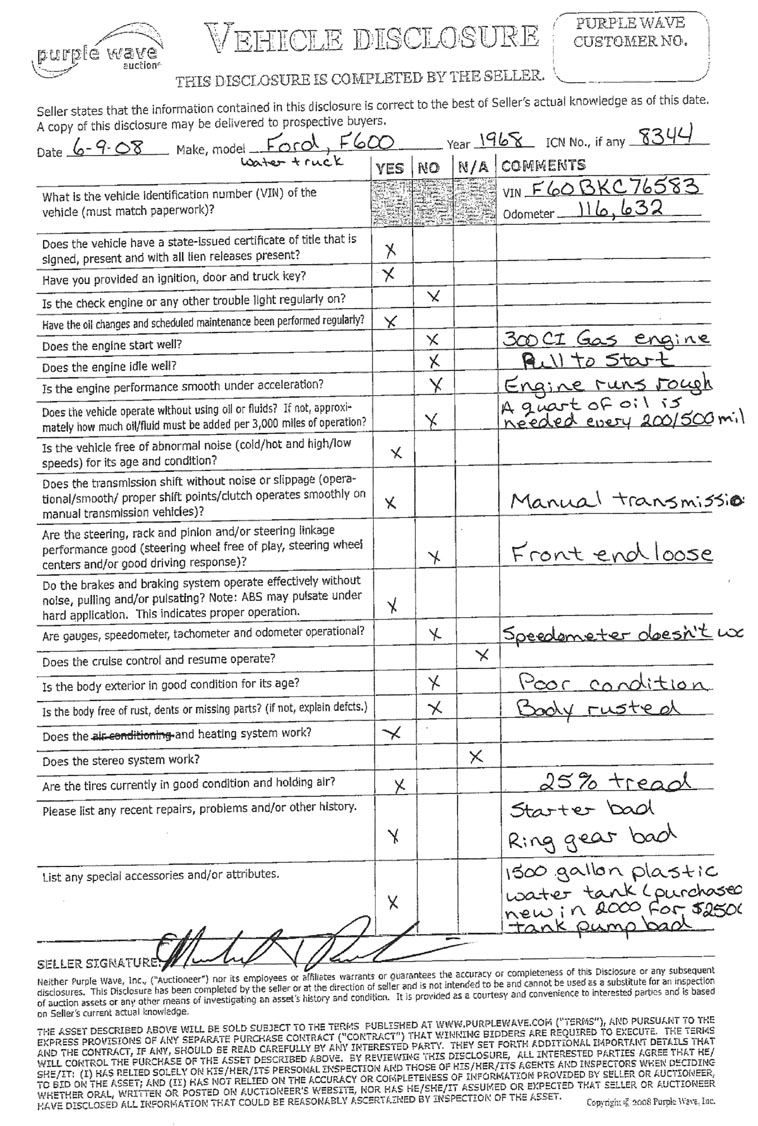 purple wave
auction
VEHICLE DISCLOSURE
PURPLE WAVE
CUSTOMER NO.
THIS DISCLOSURE IS COMPLETED BY THE SELLER.
Seller states that the information contained in this disclosure is correct to the best of Seller's actual knowledge as of this date.
A copy of this disclosure may be delivered to prospective buyers.
Date 6-9-08 Make, model Ford, F600 Year 1968 ICN No., if any 8344
water truck
YES NO N/A COMMENTS
What is the vehicle identification number (VIN) of the
vehicle (must match paperwork)?
VIN F60BKC76583
Odometer 116,632
Does the vehicle have a state-issued certificate of title that is
signed, present and with all lien releases present? X
Have you provided an ignition, door and truck key? X
Is the check engine or any other trouble light regularly on? X
Have the oil changes and scheduled maintenance been performed regularly? X
Does the engine start well? X 300CI Gas engine
Does the engine idle well? X Pull to Start
Is the engine performance smooth under acceleration? X Engine runs rough
Does the vehicle operate without using oil or fluids? If not, approxi-
mately how much oil/fluid must be added per 3,000 miles of operation? X
A quart of oil is
needed every 200/500 mil
Is the vehicle free of abnormal noise (cold/hot and high/low
speeds) for its age and condition? X
Does the transmission shift without noise or slippage (opera-
tional/smooth/ proper shift points/clutch operates smoothly on
manual transmission vehicles)? X Manual transmissio
Are the steering, rack and pinion and/or steering linkage
performance good (steering wheel free of play, steering wheel
centers and/or good driving response)? X Front end loose
Do the brakes and braking system operate effectively without
noise, pulling and/or pulsating? Note: ABS may pulsate under
hard application. This indicates proper operation. X
Are gauges, speedometer, tachometer and odometer operational? X Speedometer doesn't wo
Does the cruise control and resume operate? X
Is the body exterior in good condition for its age? X Poor condition
Is the body free of rust, dents or missing parts? (if not, explain defcts.) X Body rusted
Does the air conditioning and heating system work? X
Does the stereo system work? X
Are the tires currently in good condition and holding air? X 25% tread
Please list any recent repairs, problems and/or other history. X
Starter bad
Ring gear bad
List any special accessories and/or attributes. X
1500 gallon plastic
water tank (purchased
new in 2000 for $2500
tank pump bad
SELLER SIGNATURE:
Neither Purple Wave, Inc., ("Auctioneer") nor its employees or affiliates warrants or guarantees the accuracy or completeness of this Disclosure or any subsequent
disclosures. This Disclosure has been completed by the seller or at the direction of seller and is not intended to be and cannot be used as a substitute for an inspection
of auction assets or any other means of investigating an asset's history and condition. It is provided as a courtesy and convenience to interested parties and is based
on Seller's current actual knowledge.
THE ASSET DESCRIBED ABOVE WILL BE SOLD SUBJECT TO THE TERMS PUBLISHED AT WWW.PURPLEWAVE.COM ("TERMS"), AND PURSUANT TO THE
EXPRESS PROVISIONS OF ANY SEPARATE PURCHASE CONTRACT ("CONTRACT") THAT WINNING BIDDERS ARE REQUIRED TO EXECUTE. THE TERMS
AND THE CONTRACT, IF ANY, SHOULD BE READ CAREFULLY BY ANY INTERESTED PARTY. THEY SET FORTH ADDITIONAL IMPORTANT DETAILS THAT
WILL CONTROL THE PURCHASE OF THE ASSET DESCRIBED ABOVE. BY REVIEWING THIS DISCLOSURE, ALL INTERESTED PARTIES AGREE THAT HE/
SHE/IT: (I) HAS RELIED SOLELY ON HIS/HER/ITS PERSONAL INSPECTION AND THOSE OF HIS/HER/ITS AGENTS AND INSPECTORS WHEN DECIDING
TO BID ON THE ASSET; AND (II) HAS NOT RELIED ON THE ACCURACY OR COMPLETENESS OF INFORMATION PROVIDED BY SELLER OR AUCTIONEER,
WHETHER ORAL, WRITTEN OR POSTED ON AUCTIONEER'S WEBSITE, NOR HAS HE/SHE/IT ASSUMED OR EXPECTED THAT SELLER OR AUCTIONEER
HAVE DISCLOSED ALL INFORMATION THAT COULD BE REASONABLY ASCERTAINED BY INSPECTION OF THE ASSET.
Copyright © 2008 Purple Wave, Inc.